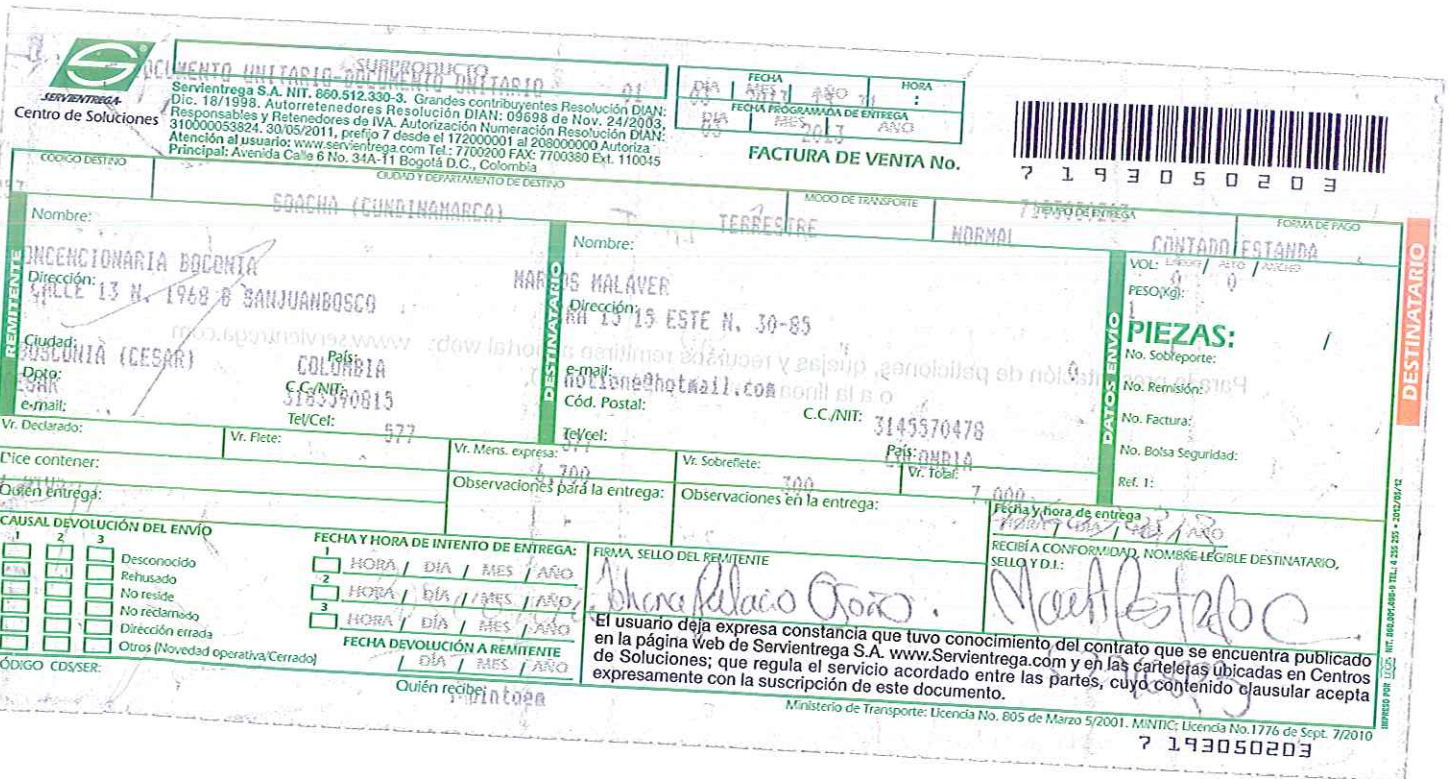 SERVIENTREGA
Centro de Soluciones
SUBPRODUCTO
DOCUMENTO UNITARIO-DOCUMENTO UNITARIO 01
Servientrega S.A. NIT. 860.512.330-3. Grandes contribuyentes Resolución DIAN:
Dic. 18/1998. Autorretenedores Resolución DIAN: 09698 de Nov. 24/2003.
Responsables y Retenedores de IVA. Autorización Numeración Resolución DIAN:
310000053824. 30/05/2011, prefijo 7 desde el 172000001 al 208000000 Autoriza
Atención al usuario: www.servientrega.com Tel.: 7700200 FAX: 7700380 Ext. 110045
Principal: Avenida Calle 6 No. 34A-11 Bogotá D.C., Colombia
FECHA HORA
DÍA MES AÑO :
03 2017
FECHA PROGRAMADA DE ENTREGA
DÍA MES AÑO
03 2017
FACTURA DE VENTA No.
7193050203
CODIGO DESTINO
CIUDAD Y DEPARTAMENTO DE DESTINO
MODO DE TRANSPORTE
TIEMPO DE ENTREGA
FORMA DE PAGO
SOACHA (CUNDINAMARCA)
TERRESTRE
NORMAL
CONTADO ESTANDA
REMITENTE
Nombre:
ONCENCIONARIA BOCONIA
Dirección:
CALLE 13 N. 1968 B SANJUANBOSCO
Ciudad:
BOSCONIA (CESAR)
País:
COLOMBIA
Dpto:
CESAR
C.C./NIT:
3183390815
e-mail:
Tel/Cel:
577
DESTINATARIO
Nombre:
MARCOS MALAVER
Dirección:
KRA 15 15 ESTE N. 30-85
e-mail:
notiene@hotmail.com
Cód. Postal:
C.C./NIT:
3145570478
Tel/cel:
País:
COLOMBIA
Para la presentación de peticiones, quejas y recursos remitirse al portal web: www.servientrega.com
o a la línea
DATOS ENVÍO
VOL: LARGO / ALTO / ANCHO
0 0
PESO(Kg):
1
PIEZAS: /
No. Sobreporte:
No. Remisión:
No. Factura:
No. Bolsa Seguridad:
Ref. 1:
DESTINATARIO
Vr. Declarado:
Vr. Flete:
Vr. Mens. expresa:
6,700
Vr. Sobreflete:
300
Vr. Total:
7,000
Dice contener:
Quién entrega:
Observaciones para la entrega:
Observaciones en la entrega:
Fecha y hora de entrega
HORA / DÍA / MES / AÑO
CAUSAL DEVOLUCIÓN DEL ENVÍO
1 2 3
Desconocido
Rehusado
No reside
No reclamado
Dirección errada
Otros (Novedad operativa/Cerrado)
FECHA Y HORA DE INTENTO DE ENTREGA:
1 HORA / DÍA / MES / AÑO
2 HORA / DÍA / MES / AÑO
3 HORA / DÍA / MES / AÑO
FECHA DEVOLUCIÓN A REMITENTE
DÍA / MES / AÑO
FIRMA, SELLO DEL REMITENTE
Johana Palacio
RECIBÍ A CONFORMIDAD, NOMBRE LEGIBLE DESTINATARIO,
SELLO Y D.I.:
El usuario deja expresa constancia que tuvo conocimiento del contrato que se encuentra publicado
en la página web de Servientrega S.A. www.Servientrega.com y en las carteleras ubicadas en Centros
de Soluciones; que regula el servicio acordado entre las partes, cuyo contenido clausular acepta
expresamente con la suscripción de este documento.
CÓDIGO CDS/SER:
Quién recibe:
Ministerio de Transporte: Licencia No. 805 de Marzo 5/2001. MINTIC: Licencia No.1776 de Sept. 7/2010
7 193050203